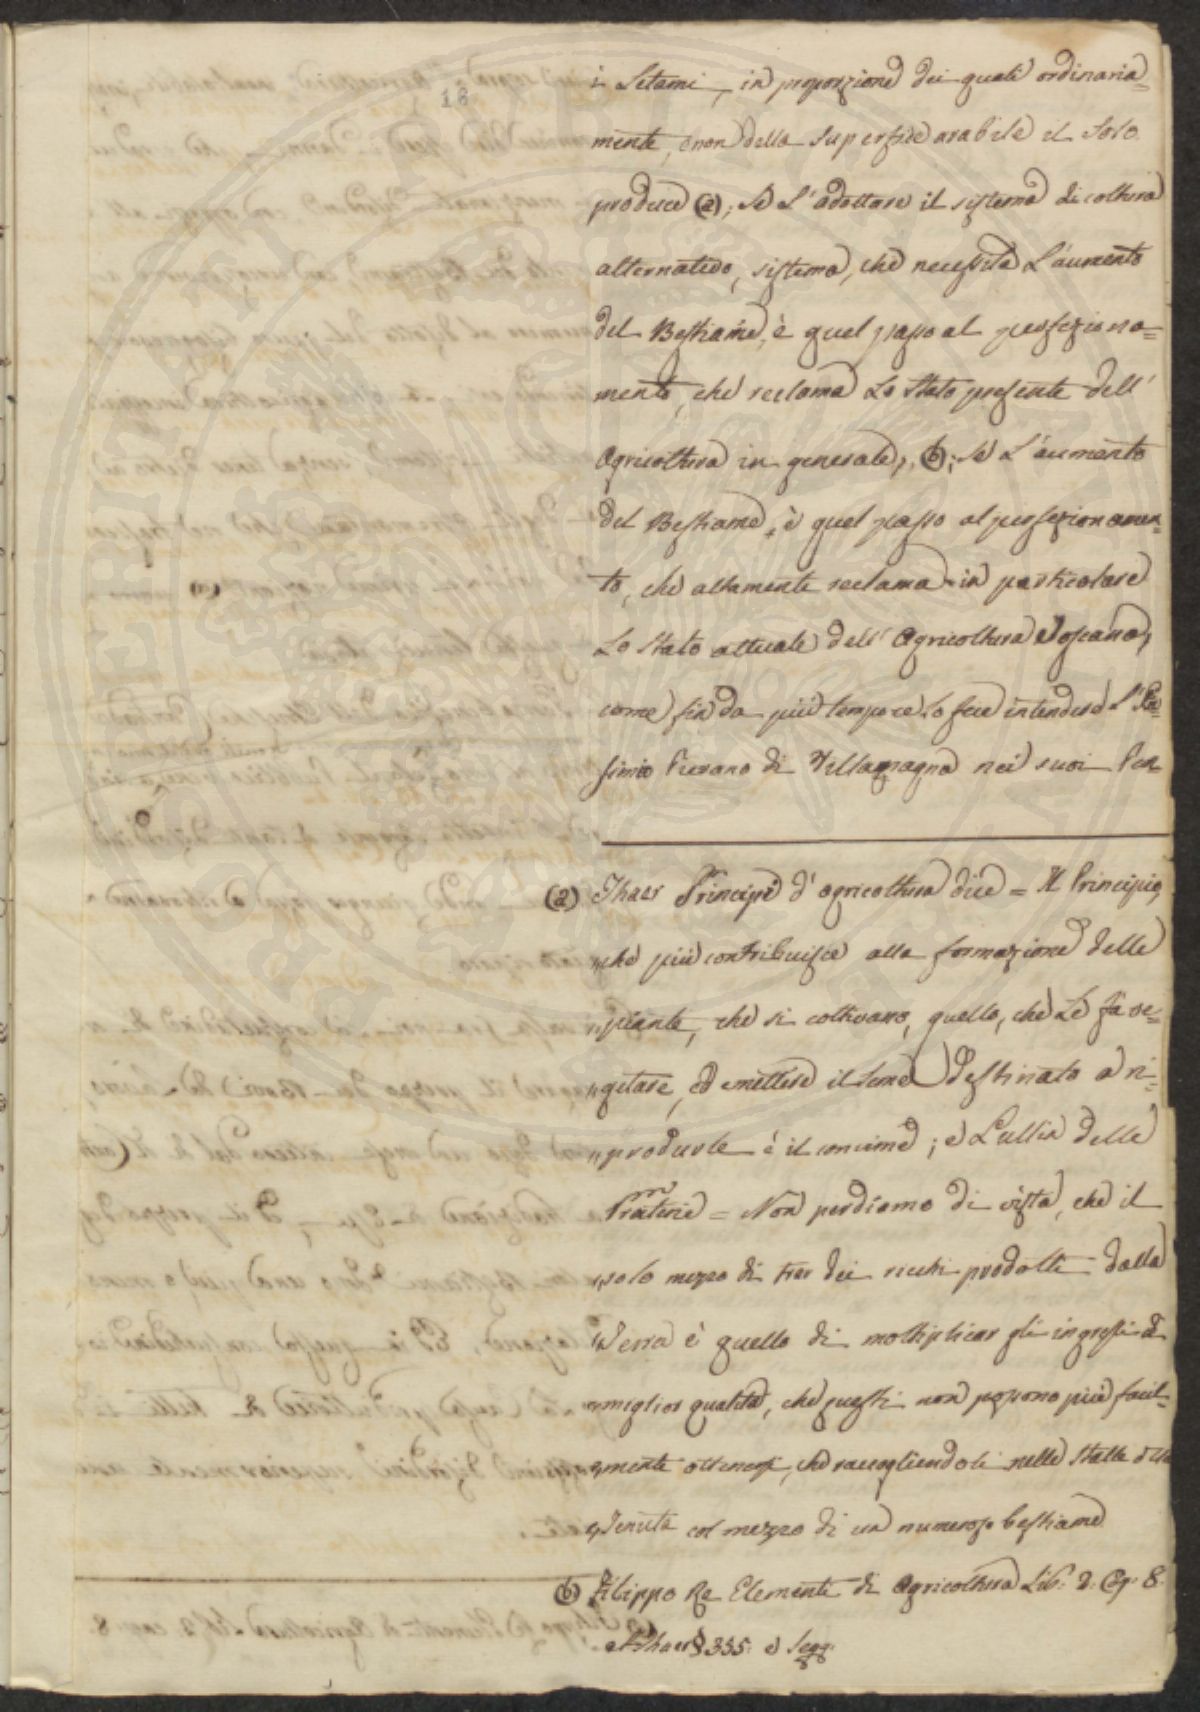 18
i Letami, in proporzione dei quali ordinaria=
mente, e non della superficie arabile il solo
produce (a); se l'adottare il sistema di coltura
alternativo, sistema, che necessita l'aumento
del Bestiame, è quel passo al perfeziona=
mento, che reclama lo stato presente dell'
Agricoltura in generale, (b); se l'aumento
del Bestiame, è quel passo al perfezionamen=
to, che altamente reclama in particolare
lo stato attuale dell'Agricoltura Toscana,
come fin da più tempo ce lo fece intendere l'
Pievano di Villamagna nei suoi Pen
(a) Thaer Principj d'agricoltura dice = Il Principio,
"che più contribuisce alla formazione delle
"piante, che si coltivano, quello, che le fa ve=
"getare, ed emettere il seme destinato a ri=
"produrle è il concime; e Lullin delle
Praterie = Non perdiamo di vista, che il
"solo mezzo di trar dei ricchi prodotti dalla
"Terra è quello di moltiplicar gli ingrassi di
"miglior qualità, che questi non possono più facil=
"mente ottenersi, che raccogliendoli nelle stalle della
"Tenuta col mezzo di un numeroso bestiame
(b) Filippo Re Elementi di Agricoltura Lib: 2. Cap. 8.
e Thaer § 335. e segg: